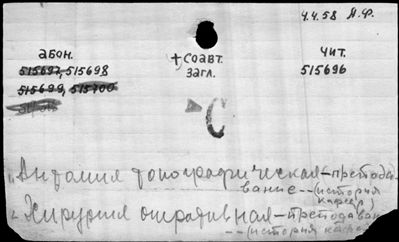 4.4.58 А.Ф.
абон. + соавт. чит.
515697, 515698 загл. 515696
515699, 515700
С
Анатомия топографическая – преподавание – (история кафедр)
Хирургия оперативная – преподаван
– – (история кафедр